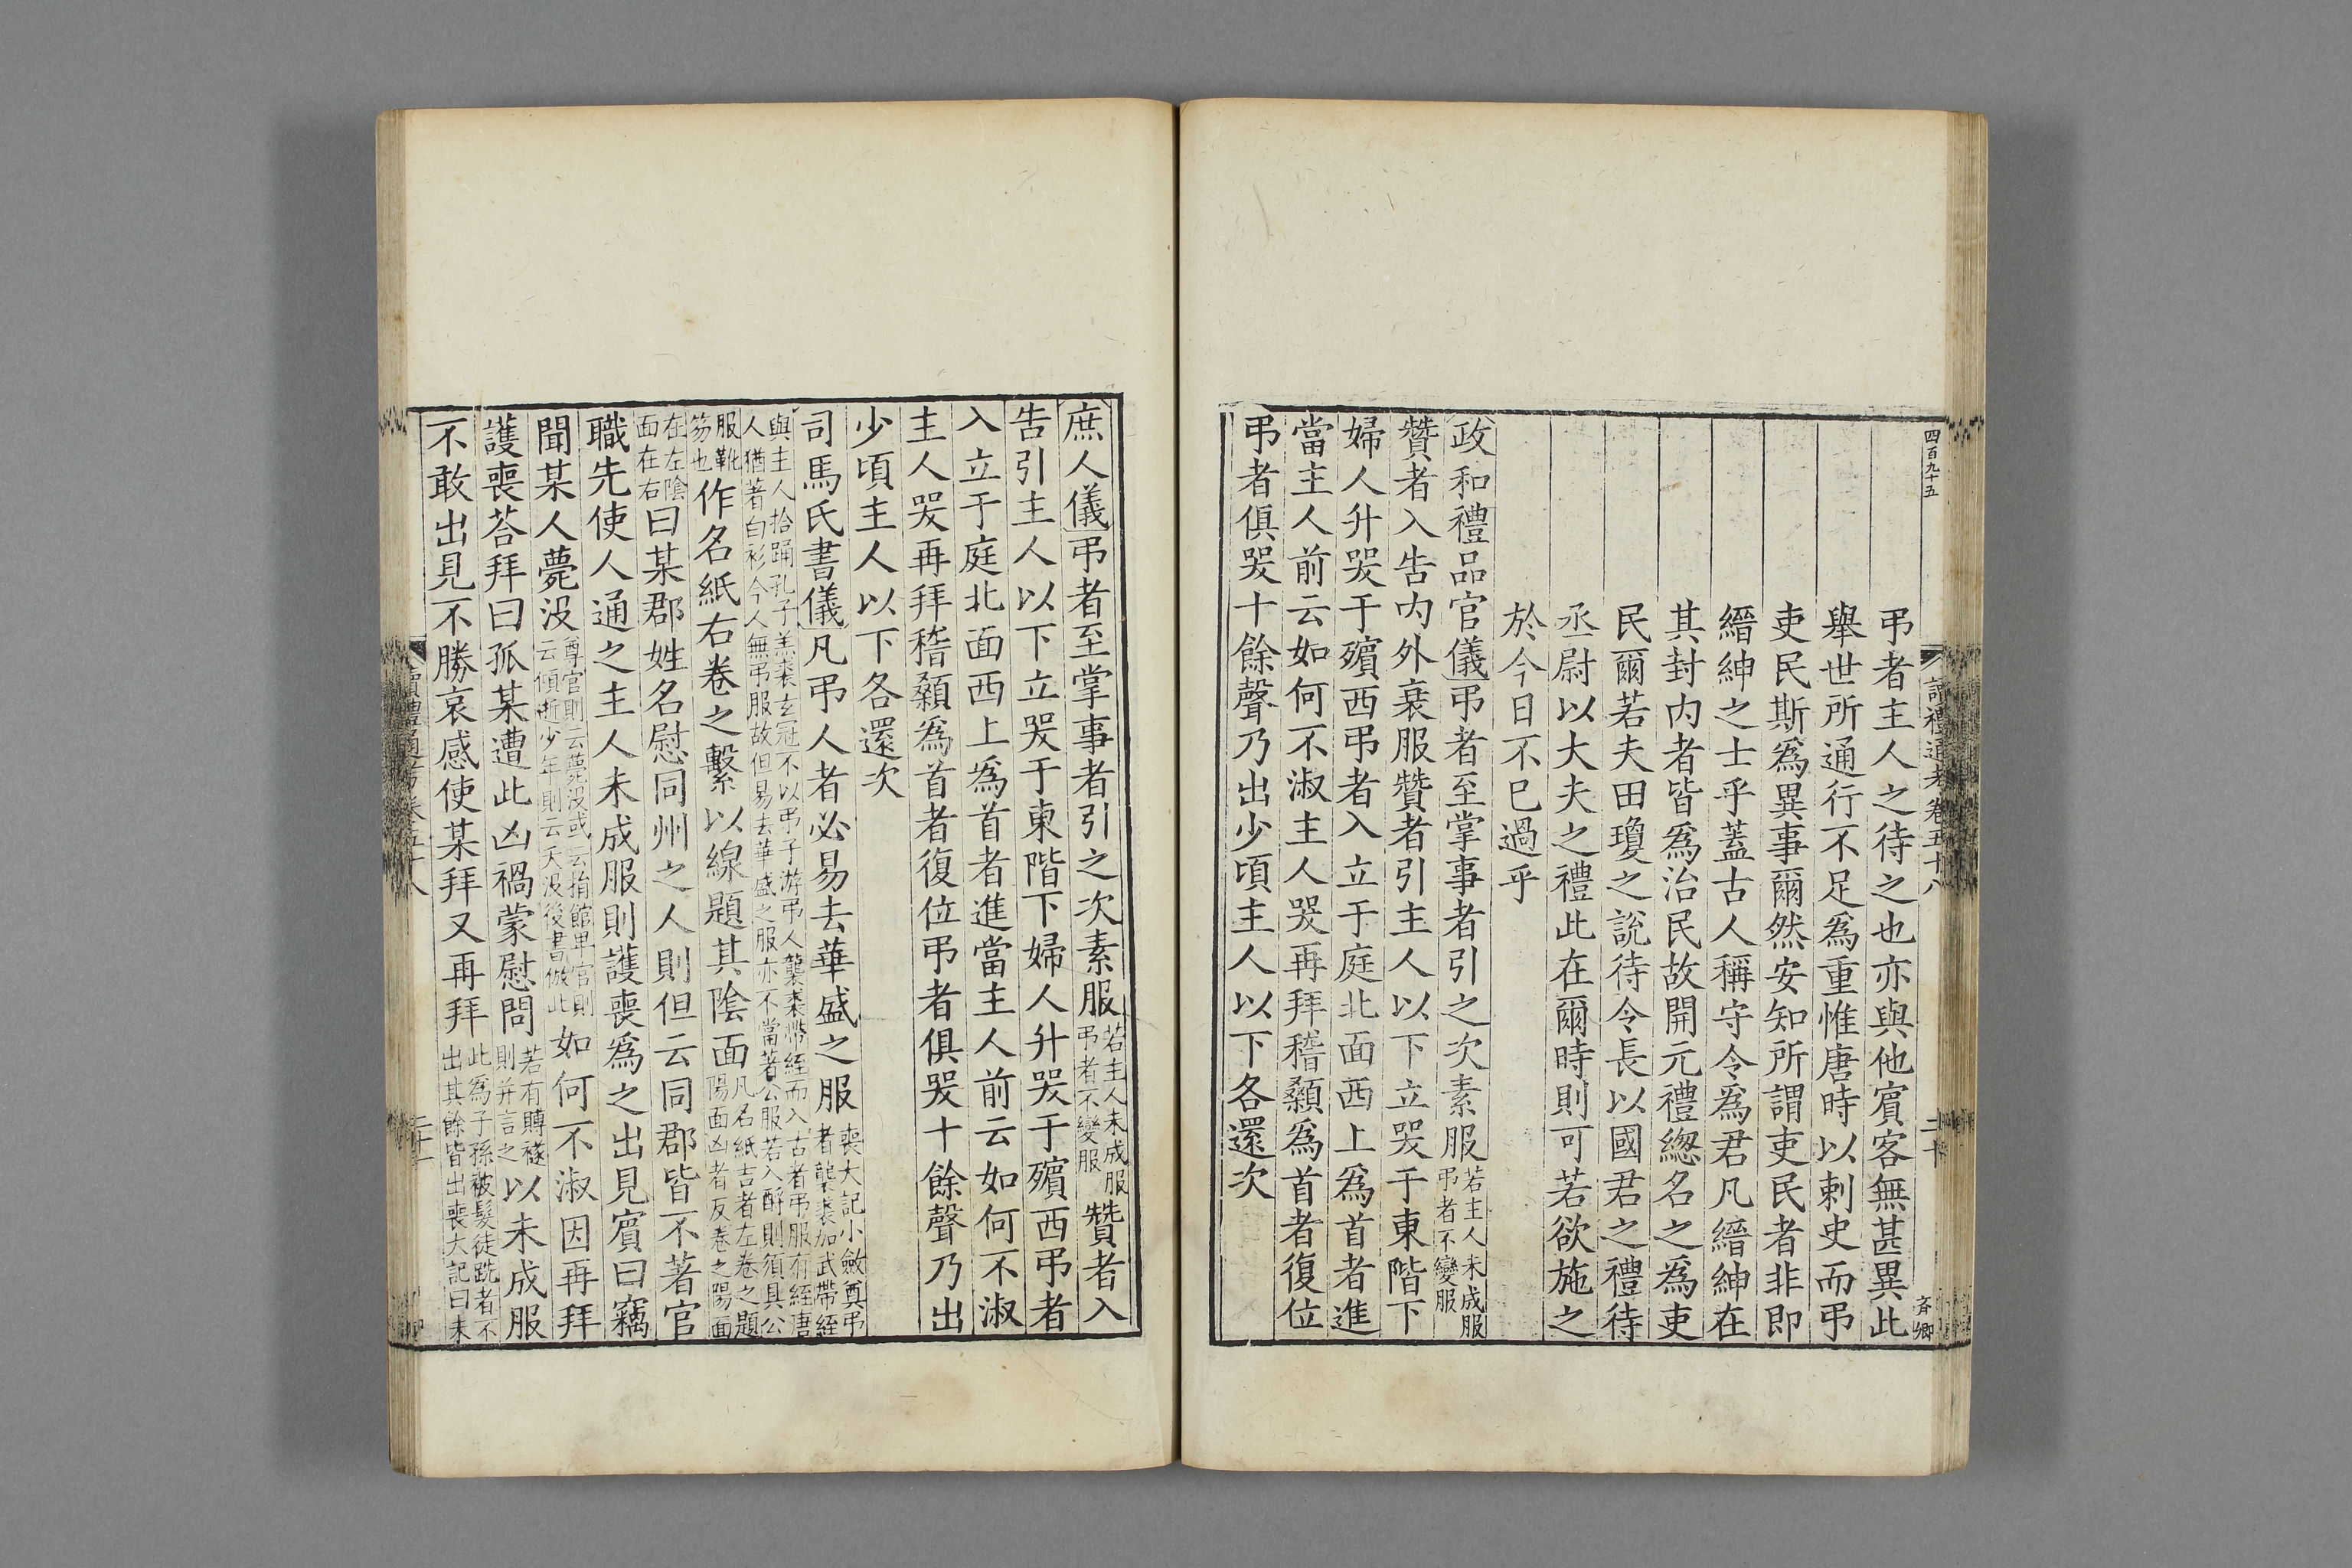 四百九十五
讀禮通考卷五十八
二十
斉卿
弔者主人之待之也亦與他賓客無甚異此
舉世所通行不足爲重惟唐時以刺史而弔
吏民斯爲異事爾然安知所謂吏民者非即
縉紳之士乎蓋古人稱守令爲君凡縉紳在
其封内者皆爲治民故開元禮緫名之爲吏
民爾若夫田瓊之說待令長以國君之禮待
丞尉以大夫之禮此在爾時則可若欲施之
於今日不已過乎
政和禮品官儀弔者至掌事者引之次素服若主人未成服弔者不變服
贊者入告内外衰服贊者引主人以下立哭于東階下
婦人升哭于殯西弔者入立于庭北面西上爲首者進
當主人前云如何不淑主人哭再拜稽顙爲首者復位
弔者俱哭十餘聲乃出少頃主人以下各還次
庶人儀弔者至掌事者引之次素服若主人未成服弔者不變服贊者入
告引主人以下立哭于東階下婦人升哭于殯西弔者
入立于庭北面西上爲首者進當主人前云如何不淑
主人哭再拜稽顙爲首者復位弔者俱哭十餘聲乃出
少頃主人以下各還次
司馬氏書儀凡弔人者必易去華盛之服喪大記小斂奠弔者襲裘加武帶絰
與主人拾踊孔子羔裘玄冠不以弔子游弔人襲裘帶絰而入古者弔服有絰唐
人猶著白衫今人無弔服故但易去華盛之服亦不當著公服若入酹則須具公
服靴笏也作名紙右卷之繫以線題其陰面凡名紙吉者左卷之題陽面凶者反卷之陽面
在左陰面在右曰某郡姓名慰同州之人則但云同郡皆不著官
職先使人通之主人未成服則護喪爲之出見賓曰竊
聞某人薨没尊官則云薨没或云捐館卑官則云傾逝少年則云夭没後書倣此如何不淑因再拜
護喪荅拜曰孤某遭此凶禍蒙慰問若有賻襚則并言之以未成服
不敢出見不勝哀感使某拜又再拜此爲子孫被髮徒跣者不出其餘皆出喪大記曰未
讀禮通考卷五十八
二十一